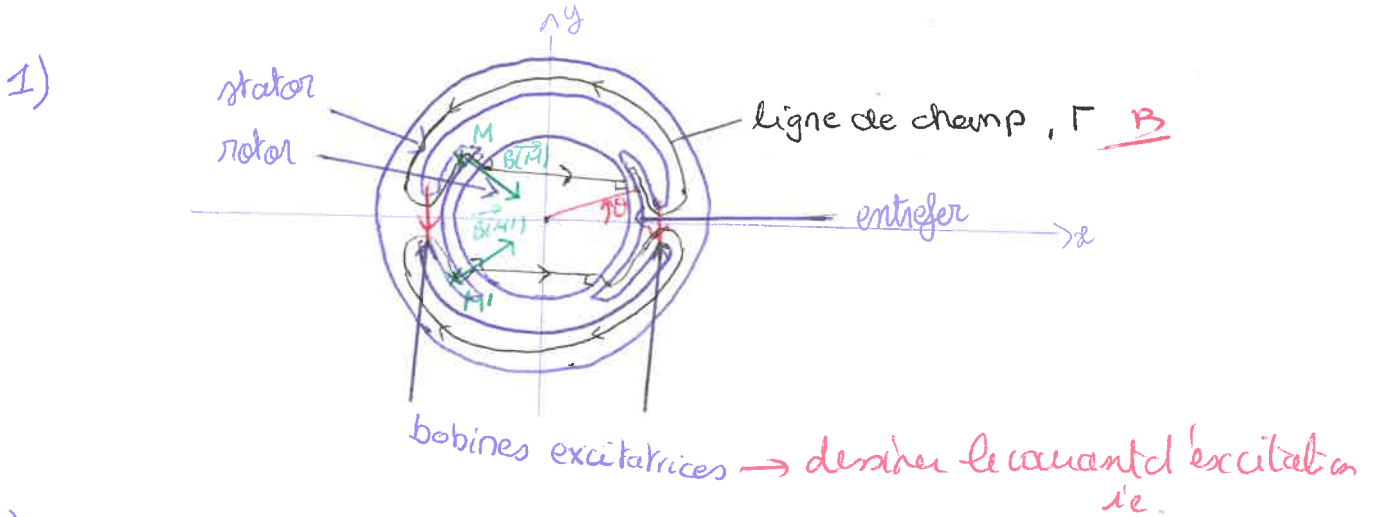 y
1)
stator
rotor
ligne de champ, Γ B
M
B(M)
θ
B(M')
entrefer
x
M'
bobines excitatrices → dessiner le courant d'excitation
ie.